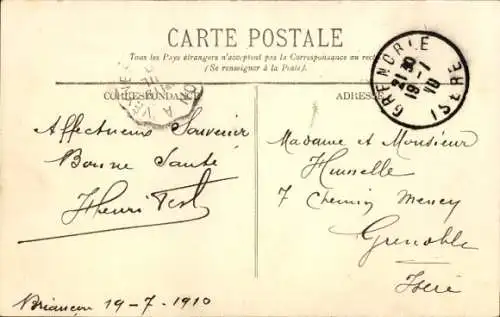 CARTE POSTALE
Tous les Pays étrangers n'acceptent pas la Correspondance au recto
(Se renseigner à la Poste).
CORRESPONDANCE
ADRESSE
GRENOBLE
ISERE
21 30
19 - 7
10
Affectueux Souvenir
Bonne Santé
Henri
Madame et Monsieur
7 Chemin
Grenoble
Isère
Briançon 19-7-1910